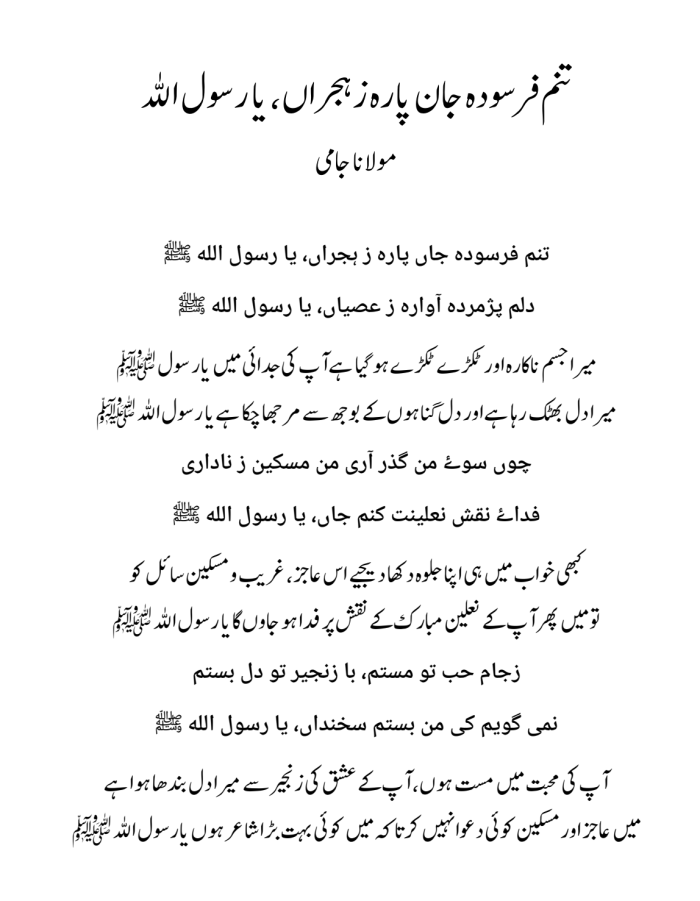 تنم فرسودہ جان پارہ ز ہجراں، یا رسول اللہ
مولانا جامی
تنم فرسودہ جاں پارہ ز ہجراں، یا رسول اللہ ﷺ
دلم پژمردہ آوارہ ز عصیاں، یا رسول اللہ ﷺ
میرا جسم ناکارہ اور ٹکڑے ٹکڑے ہو گیا ہے آپ کی جدائی میں یا رسول ﷺ
میرا دل بھٹک رہا ہے اور دل گناہوں کے بوجھ سے مرجھا چکا ہے یا رسول اللہ ﷺ
چوں سوۓ من گذر آری من مسکین ز ناداری
فداۓ نقش نعلینت کنم جاں، یا رسول اللہ ﷺ
کبھی خواب میں ہی اپنا جلوہ دکھا دیجیے اس عاجز، غریب و مسکین سائل کو
تو میں پھر آپ کے نعلین مبارک کے نقش پر فدا ہو جاوں گا یا رسول اللہ ﷺ
زجام حب تو مستم، با زنجیر تو دل بستم
نمی گویم کی من بستم سخنداں، یا رسول اللہ ﷺ
آپ کی محبت میں مست ہوں، آپ کے عشق کی زنجیر سے میرا دل بندھا ہوا ہے
میں عاجز اور مسکین کوئی دعوا نہیں کرتا کہ میں کوئی بہت بڑا شاعر ہوں یا رسول اللہ ﷺ